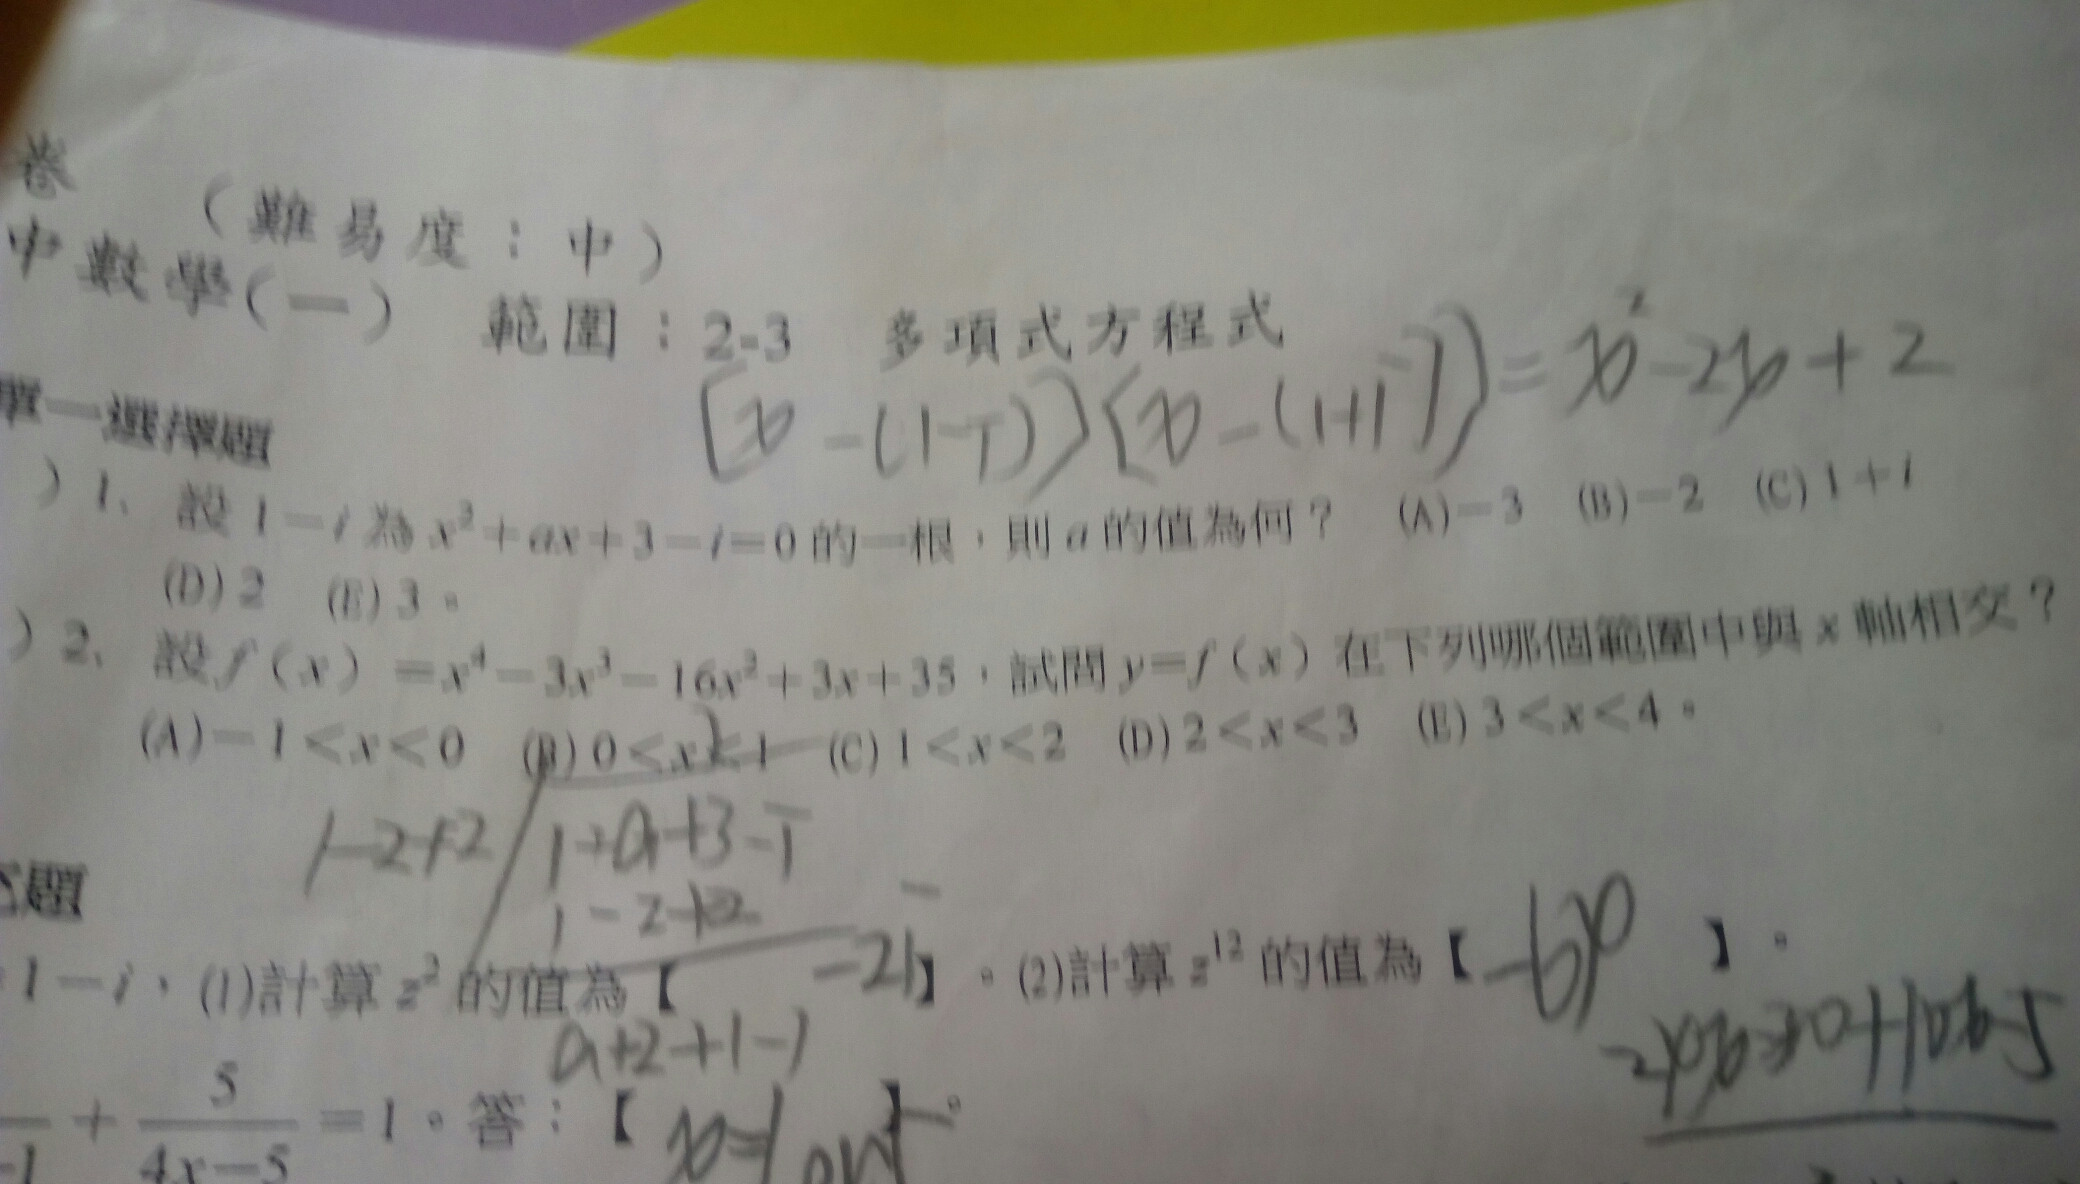 卷
(難易度：中)
中數學(一) 範圍：2-3 多項式方程式
(x-(1-i))(x-(1+i))=x²-2x+2
單一選擇題
)1. 設1-i為x²+ax+3-i=0的一根，則a的值為何？ (A)-3 (B)-2 (C)1+i
(D)2 (E)3。
)2. 設f(x)=x⁴-3x³-16x²+3x+35，試問y=f(x)在下列哪個範圍中與x軸相交？
(A)-1<x<0 (B)0<x<1 (C)1<x<2 (D)2<x<3 (E)3<x<4。
1
1-2+2 1+a+3-i
1-2+2
題
1-i，(1)計算z²的值為【-2i】。(2)計算z¹²的值為【-64】。
a+2+1-i
-1 + 5/(4x-5) =1。答：【x=1 】。